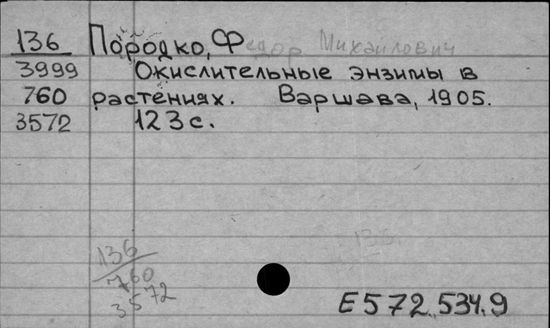 136 Породко, Федор Михайлович
3999 Окислительные энзимы в
760 растениях. Варшава, 1905.
3572 123 с.
136
136
760
3572
E572.534.9